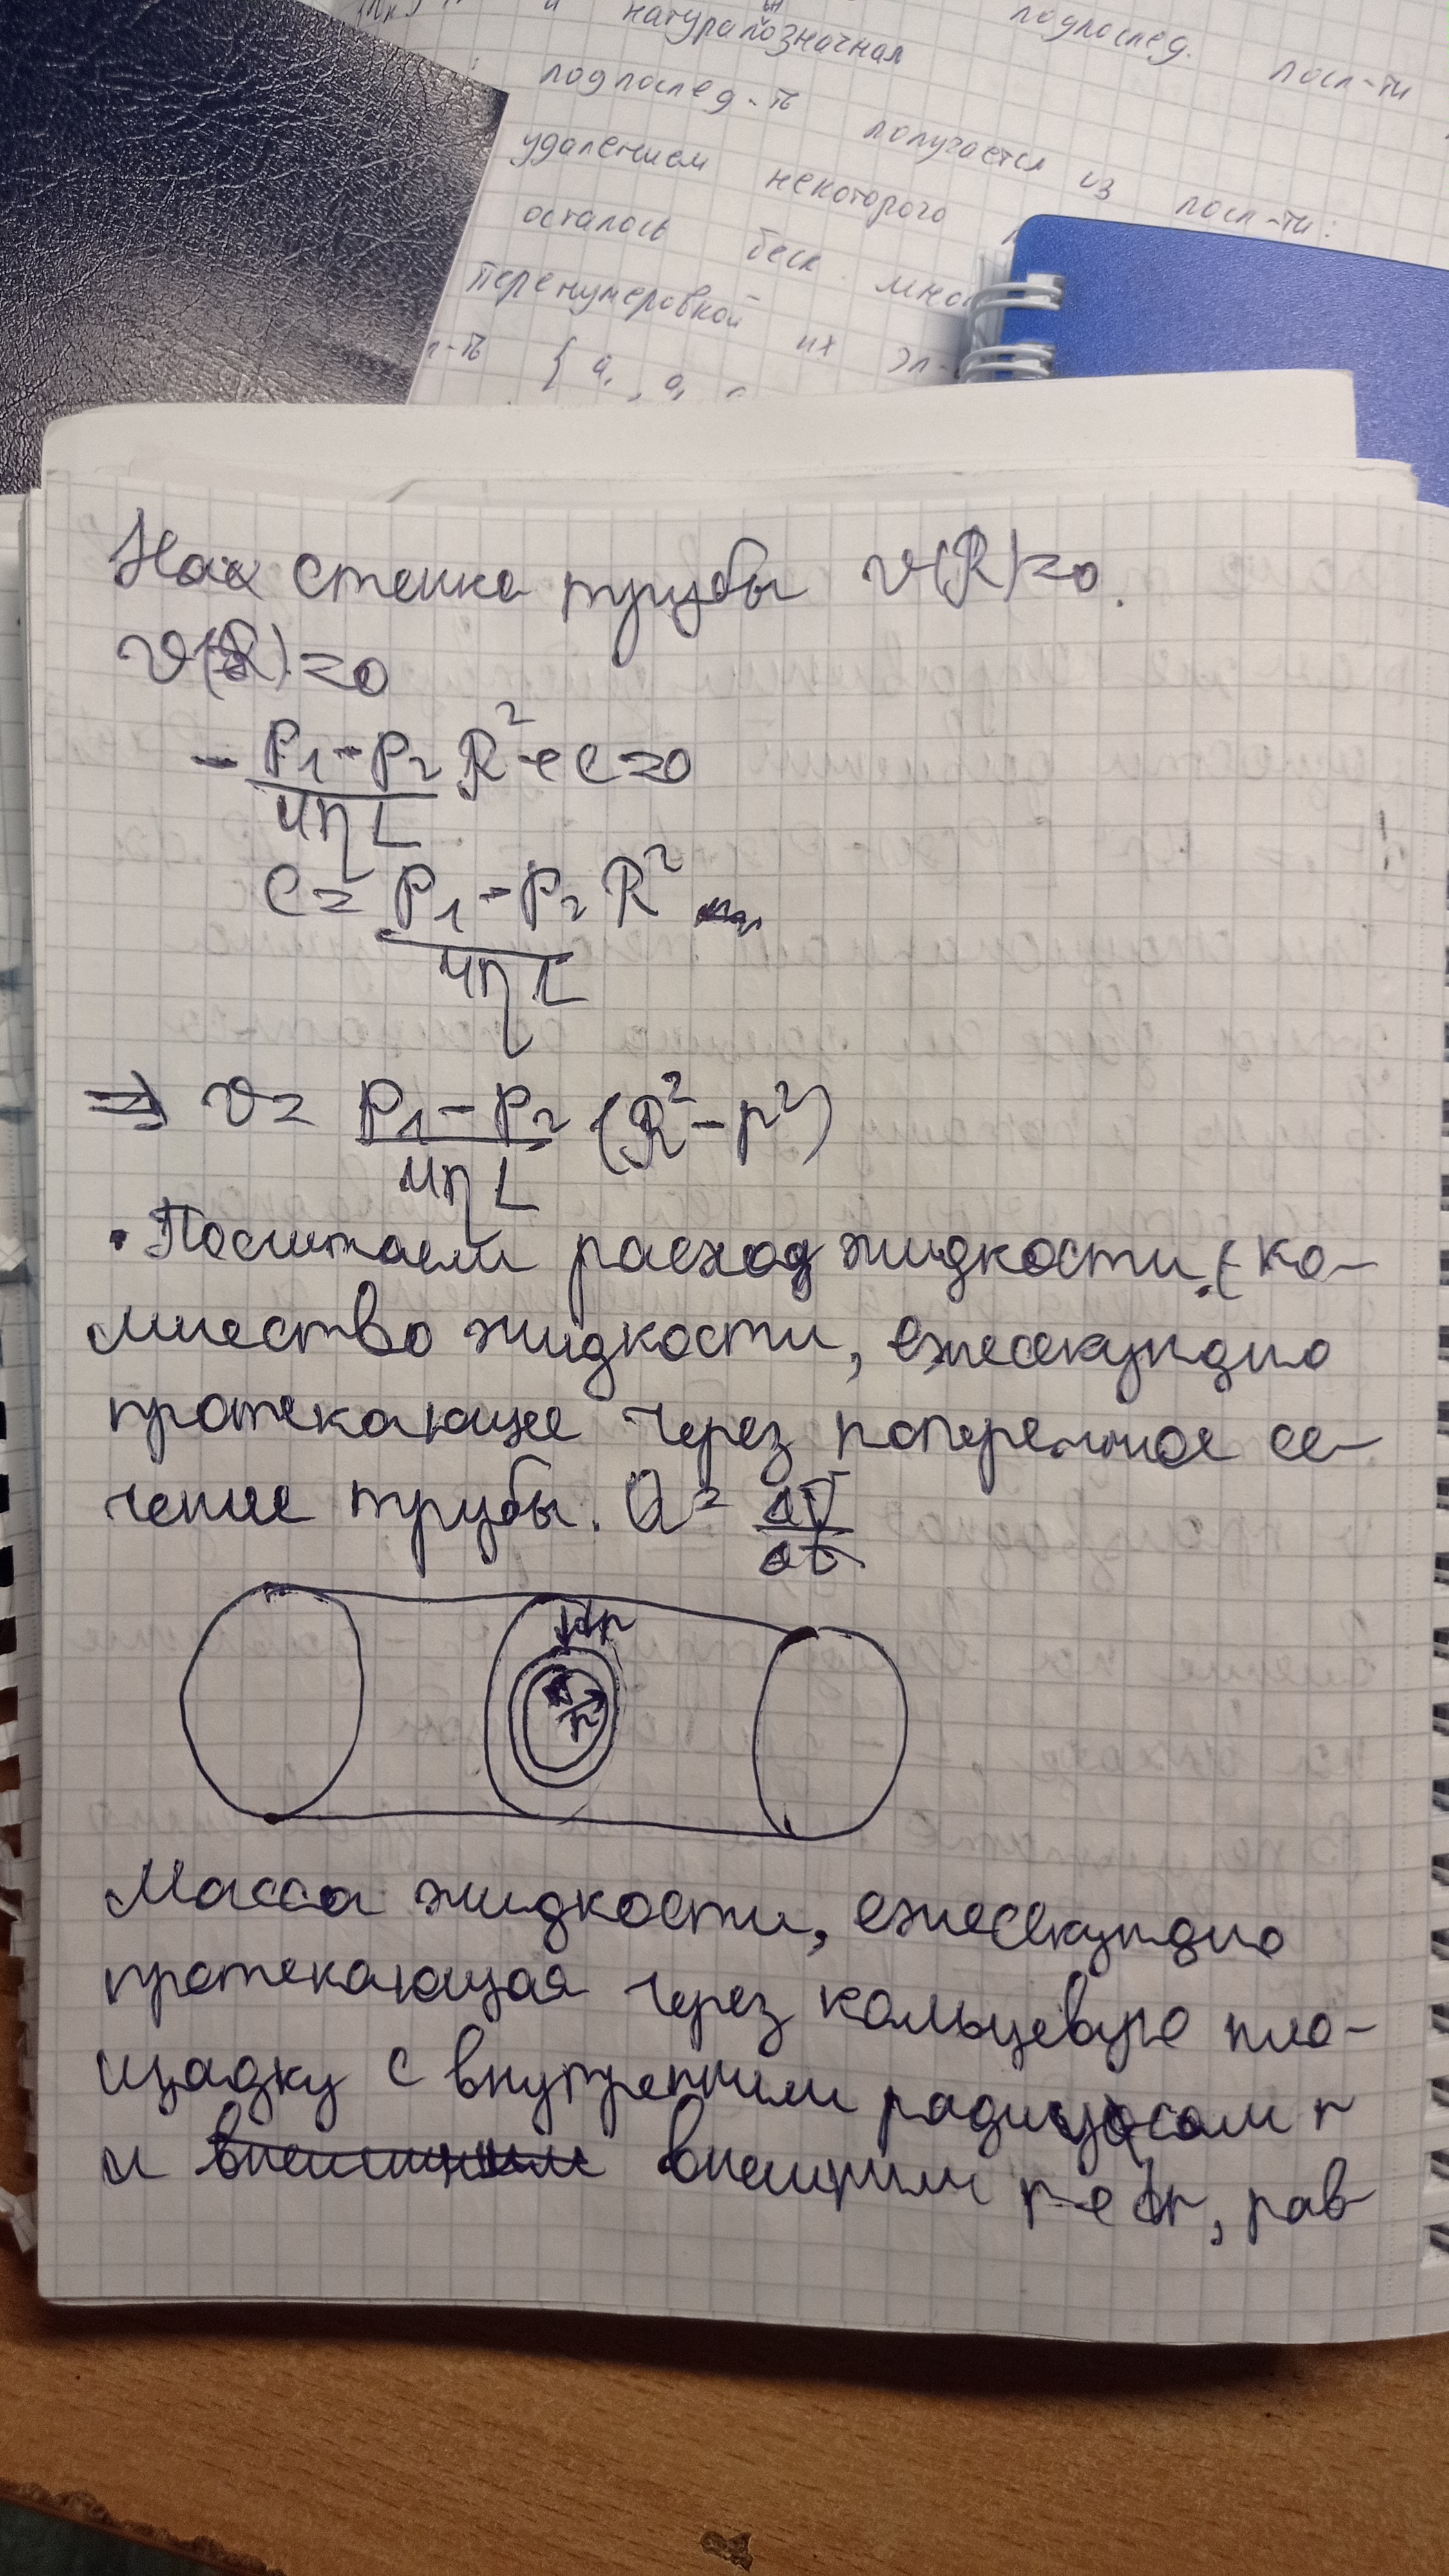 натуральнозначная подпослед. посл-ти
подпослед-ть получается из посл-ти:
удалением некоторого
осталось беск. мно
перенумеровкой их эл-
л-ть { a, , a,
На стенке трубы v(R)=0.
v(R)=0
- P₁-P₂/4ηL R²+C=0
C= P₁-P₂/4ηL R²
⇒ v= P₁-P₂/4ηL (R²-r²)
• Посчитаем расход жидкости (ко-
личество жидкости, ежесекундно
протекающее через поперечное се-
чение трубы. Q= ΔV/Δt
dr
r
Масса жидкости, ежесекундно
протекающая через кольцевую пло-
щадку с внутренним радиусом r
и внешним r+dr, рав-